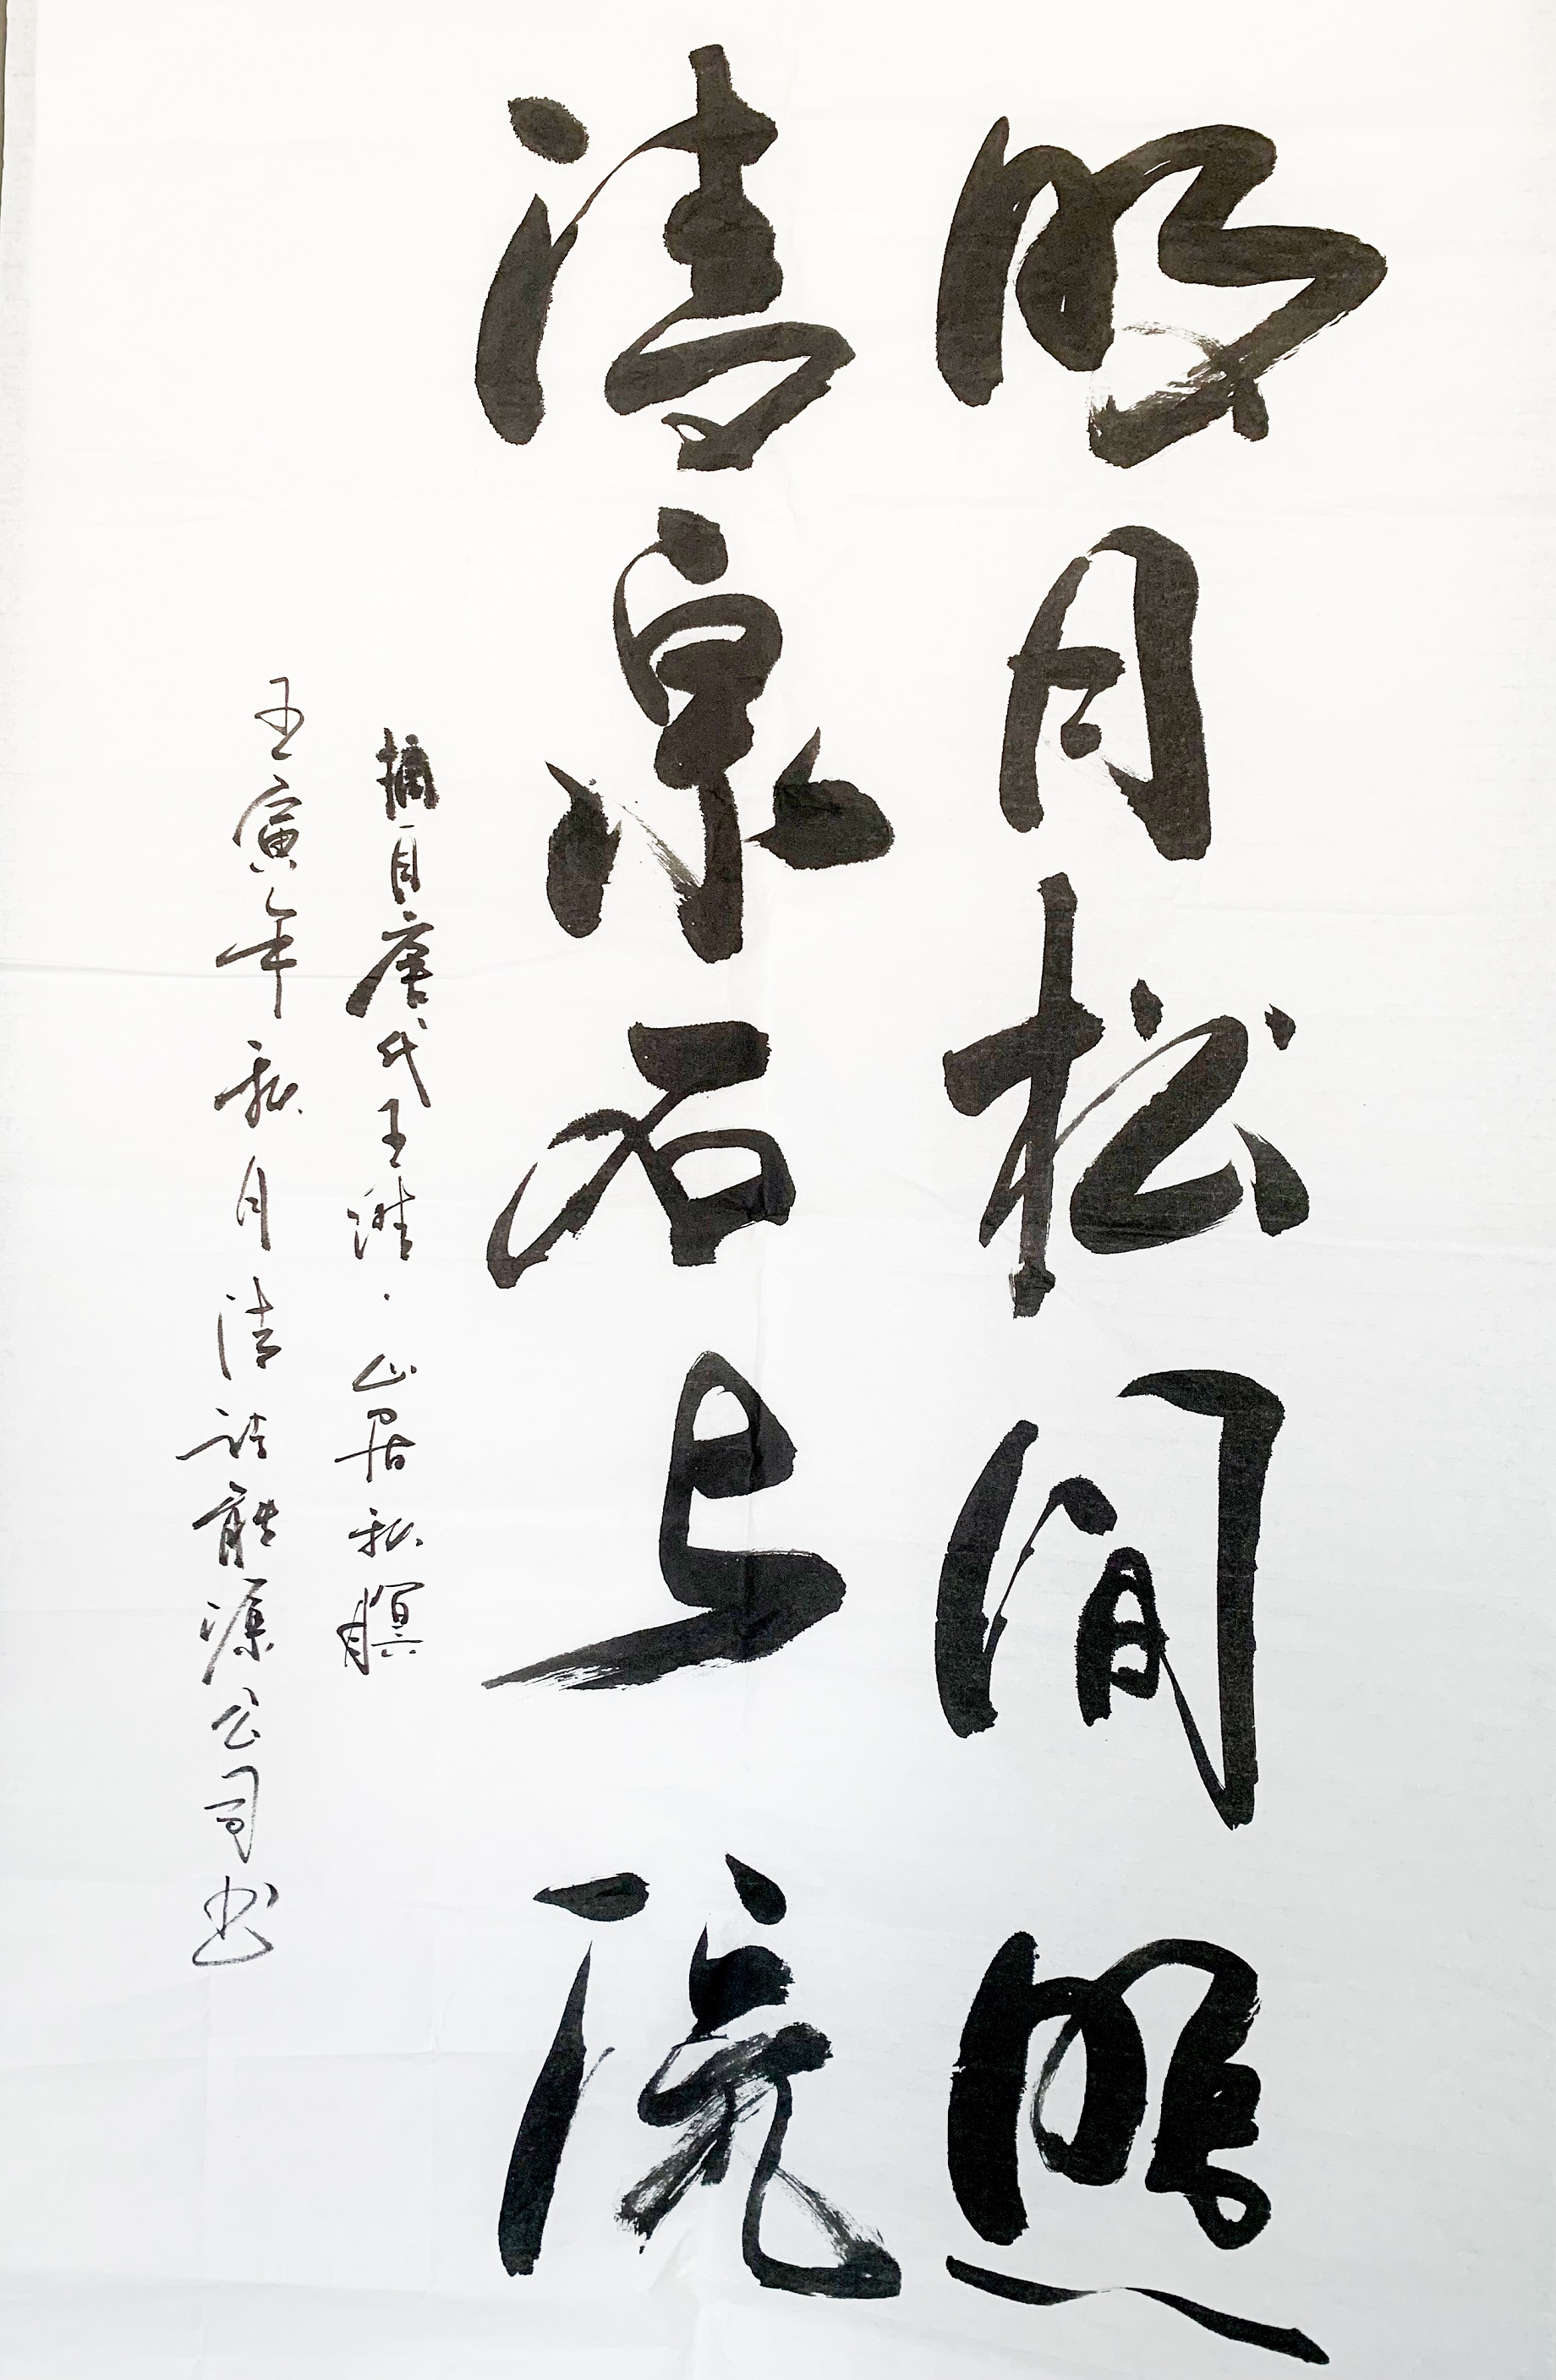 明月松间照
清泉石上流
摘自唐代王维·山居秋暝
壬寅年秋月清洁能源公司书